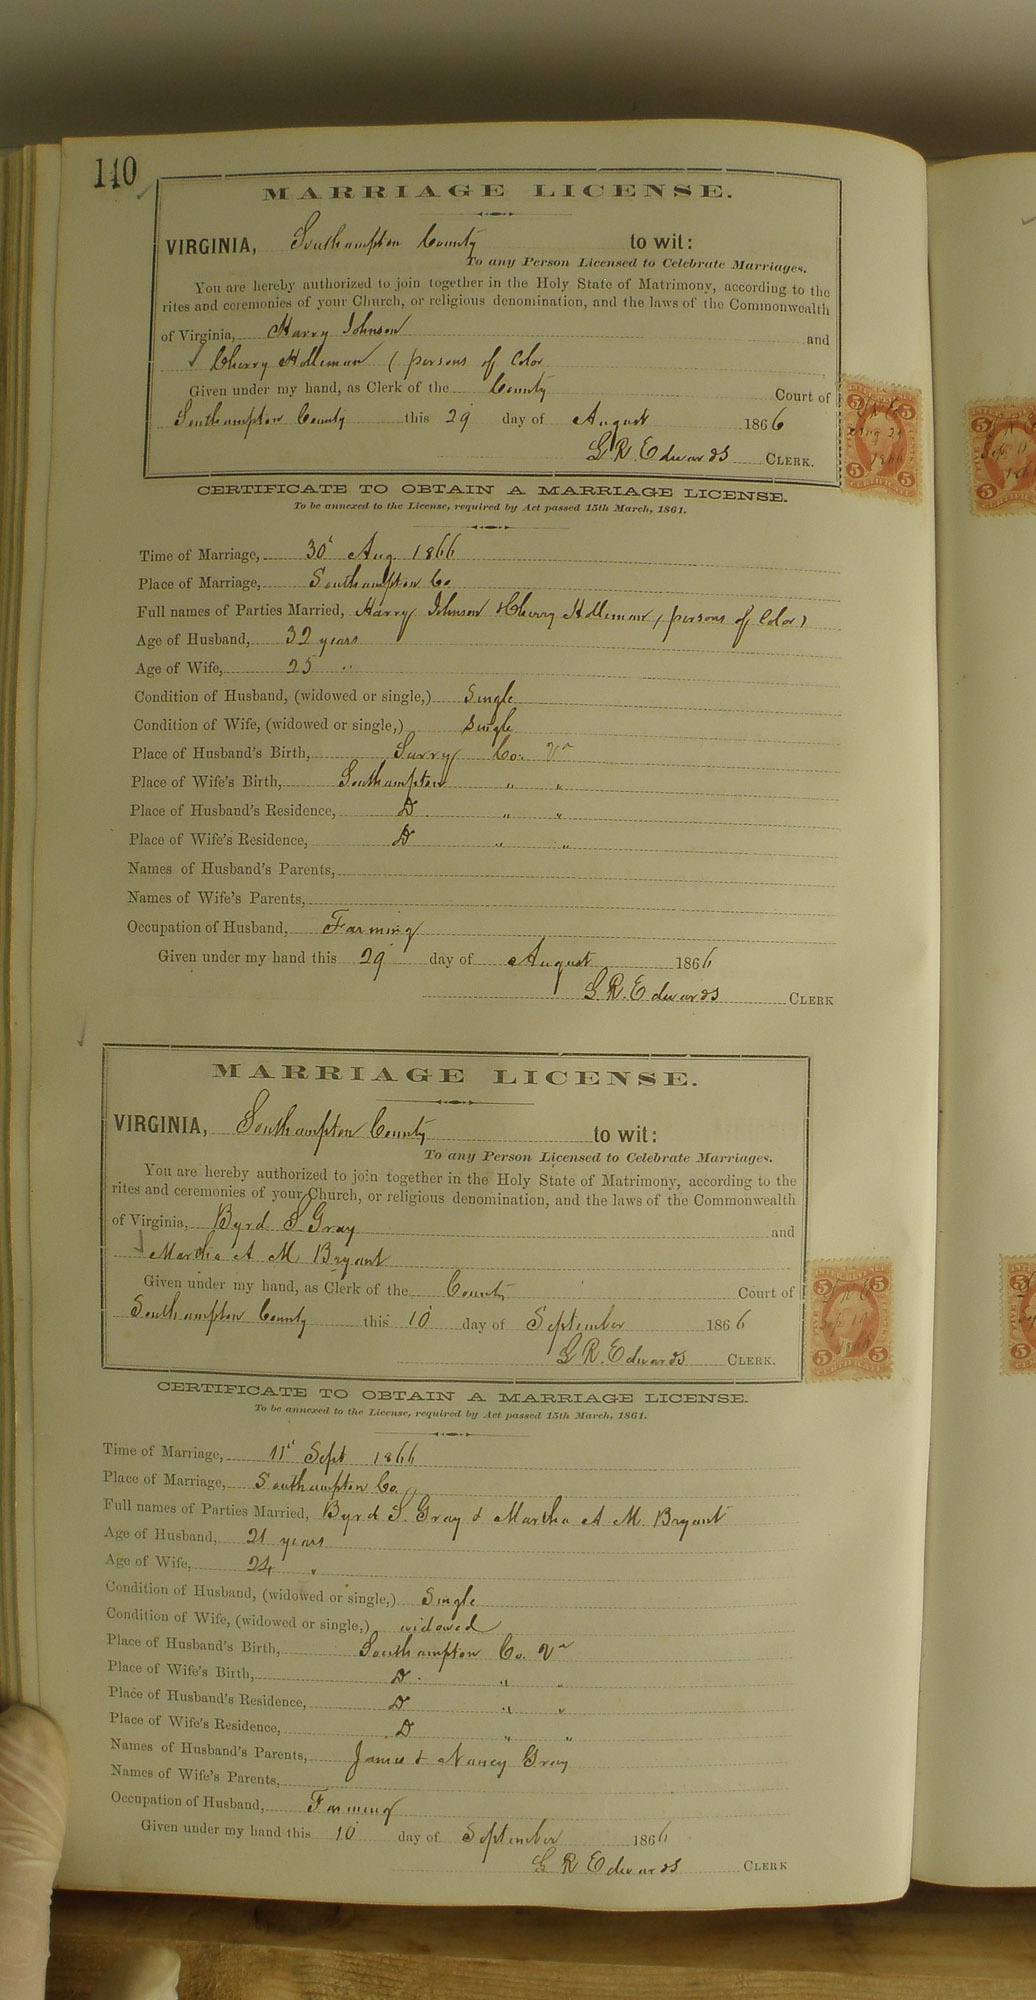 140
MARRIAGE LICENSE.
VIRGINIA, Southampton County to wit:
To any Person Licensed to Celebrate Marriages.
You are hereby authorized to join together in the Holy State of Matrimony, according to the
rites and ceremonies of your Church, or religious denomination, and the laws of the Commonwealth
of Virginia, Harry Johnson and
Cherry Holleman (persons of Color
Given under my hand, as Clerk of the County Court of
Southampton County this 29 day of August 1866
G R. Edwards CLERK.
CERTIFICATE TO OBTAIN A MARRIAGE LICENSE.
To be annexed to the License, required by Act passed 15th March, 1861.
Time of Marriage, 30th Aug. 1866
Place of Marriage, Southampton Co
Full names of Parties Married, Harry Johnson & Cherry Holleman (persons of Color)
Age of Husband, 32 years
Age of Wife, 25 "
Condition of Husband, (widowed or single,) Single
Condition of Wife, (widowed or single,) Single
Place of Husband's Birth, Surry Co. Va
Place of Wife's Birth, Southampton " "
Place of Husband's Residence, Do " "
Place of Wife's Residence, Do " "
Names of Husband's Parents,
Names of Wife's Parents,
Occupation of Husband, Farming
Given under my hand this 29 day of August 1866
G R. Edwards CLERK
MARRIAGE LICENSE.
VIRGINIA, Southampton County to wit:
To any Person Licensed to Celebrate Marriages.
You are hereby authorized to join together in the Holy State of Matrimony, according to the
rites and ceremonies of your Church, or religious denomination, and the laws of the Commonwealth
of Virginia, Byrd S Gray and
Martha A M Bryant
Given under my hand, as Clerk of the County Court of
Southampton County this 10 day of September 1866
G R. Edwards CLERK.
CERTIFICATE TO OBTAIN A MARRIAGE LICENSE.
To be annexed to the License, required by Act passed 15th March, 1861.
Time of Marriage, 11th Sept 1866
Place of Marriage, Southampton Co.
Full names of Parties Married, Byrd S. Gray & Martha A M. Bryant
Age of Husband, 21 years
Age of Wife, 24 "
Condition of Husband, (widowed or single,) Single
Condition of Wife, (widowed or single,) widowed
Place of Husband's Birth, Southampton Co. Va
Place of Wife's Birth, Do " "
Place of Husband's Residence, Do " "
Place of Wife's Residence, Do " "
Names of Husband's Parents, James & Nancy Gray
Names of Wife's Parents,
Occupation of Husband, Farming
Given under my hand this 10 day of September 1866
G R Edwards CLERK